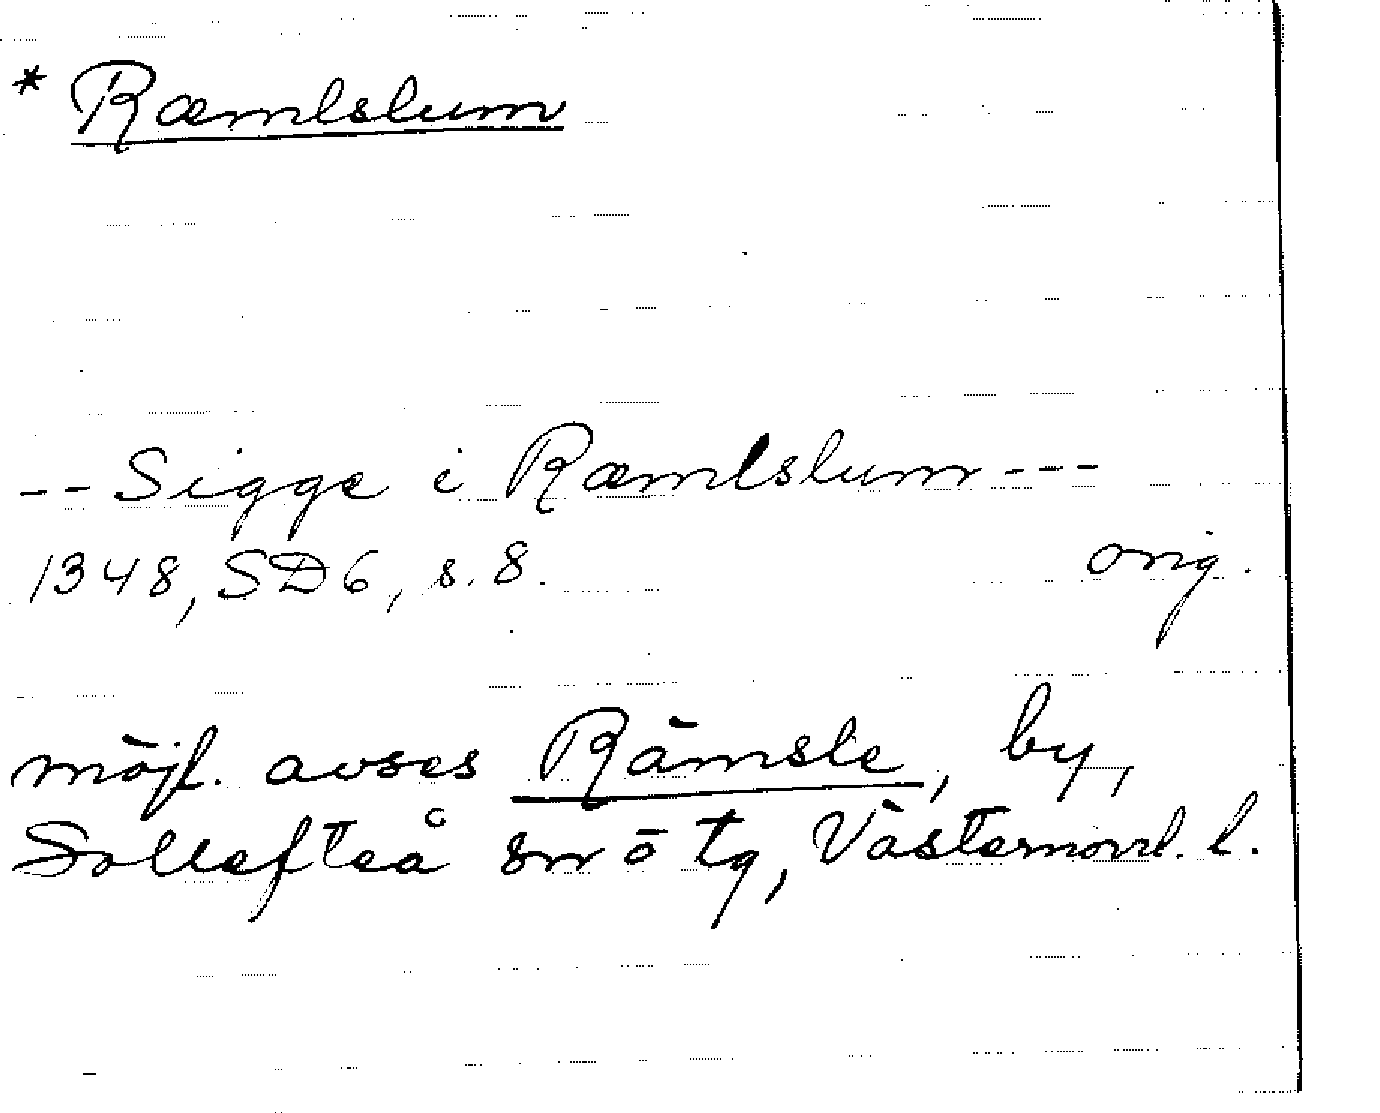 * Ræmlslum
-- Sigge i Ræmlslum ---
1348, SD6, s. 8. orig.
möjl. avses Rämsle, by,
Sollefteå sn ö tg, Västernorrl. l.